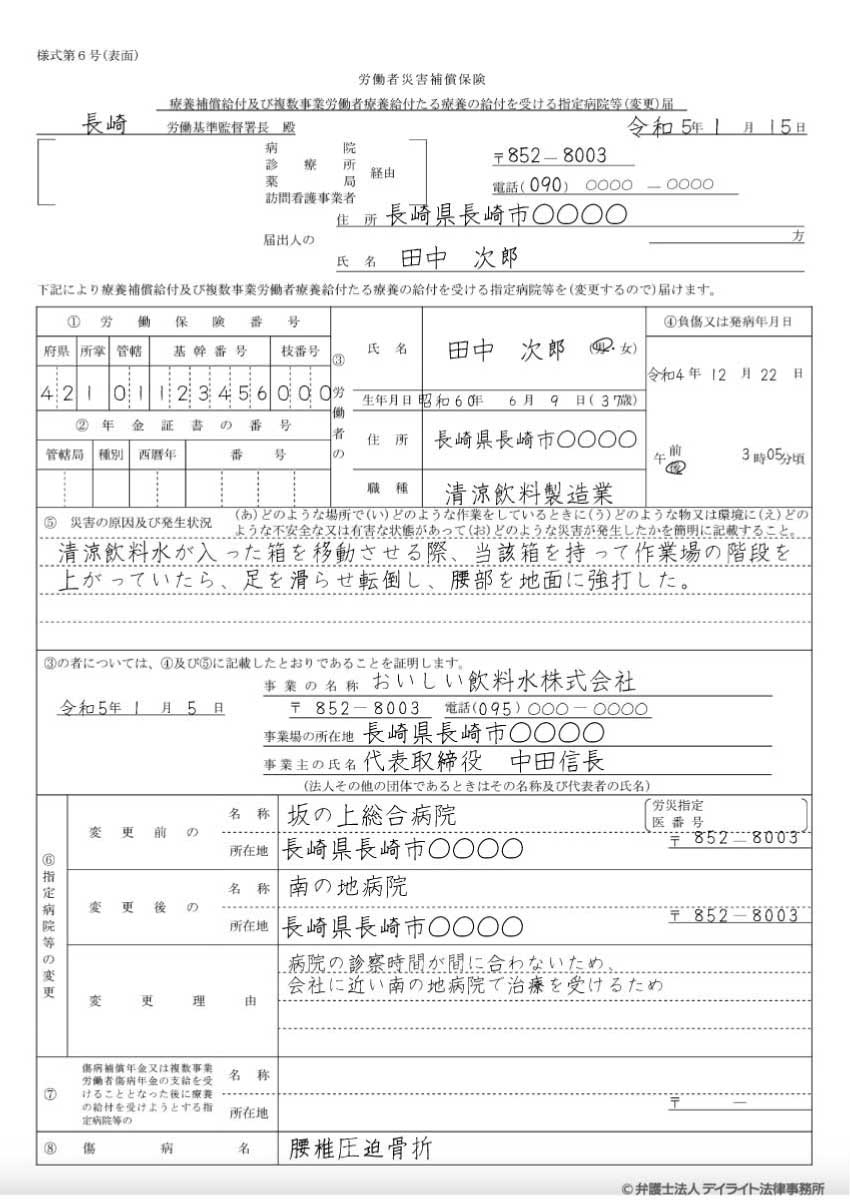 様式第6号(表面)
労働者災害補償保険
療養補償給付及び複数事業労働者療養給付たる療養の給付を受ける指定病院等(変更)届
長崎 労働基準監督署長 殿
令和5年 1 月 15日
病院
診療所
薬局
訪問看護事業者
経由
〒852-8003
電話(090) ○○○○ - ○○○○
届出人の
住所 長崎県長崎市○○○○
方
氏名 田中 次郎
下記により療養補償給付及び複数事業労働者療養給付たる療養の給付を受ける指定病院等を(変更するので)届けます。
① 労働保険番号
府県 所掌 管轄 基幹番号 枝番号
42 1 01 123456 000
② 年金証書の番号
管轄局 種別 西暦年 番号
③ 労働者の
氏名 田中 次郎 (男・女)
生年月日 昭和60年 6月 9日(37歳)
住所 長崎県長崎市○○○○
職種 清涼飲料製造業
④負傷又は発病年月日
令和4年 12月 22日
午 前 後 3時05分頃
⑤ 災害の原因及び発生状況
(あ)どのような場所で(い)どのような作業をしているときに(う)どのような物又は環境に(え)どの
ような不安全な又は有害な状態があって(お)どのような災害が発生したかを簡明に記載すること。
清涼飲料水が入った箱を移動させる際、当該箱を持って作業場の階段を
上がっていたら、足を滑らせ転倒し、腰部を地面に強打した。
③の者については、④及び⑤に記載したとおりであることを証明します。
事業の名称 おいしい飲料水株式会社
令和5年 1月 5日
〒852-8003 電話(095) ○○○-○○○○
事業場の所在地 長崎県長崎市○○○○
事業主の氏名 代表取締役 中田信長
(法人その他の団体であるときはその名称及び代表者の氏名)
⑥指定病院等の変更
変更前の
名称 坂の上総合病院
労災指定
医番号
所在地 長崎県長崎市○○○○
〒852-8003
変更後の
名称 南の地病院
所在地 長崎県長崎市○○○○
〒852-8003
変更理由
病院の診察時間が間に合わないため、
会社に近い南の地病院で治療を受けるため
⑦
傷病補償年金又は複数事業
労働者傷病年金の支給を受
けることとなった後に療養
の給付を受けようとする指
定病院等の
名称
所在地
〒 -
⑧ 傷病名 腰椎圧迫骨折
©弁護士法人デイライト法律事務所